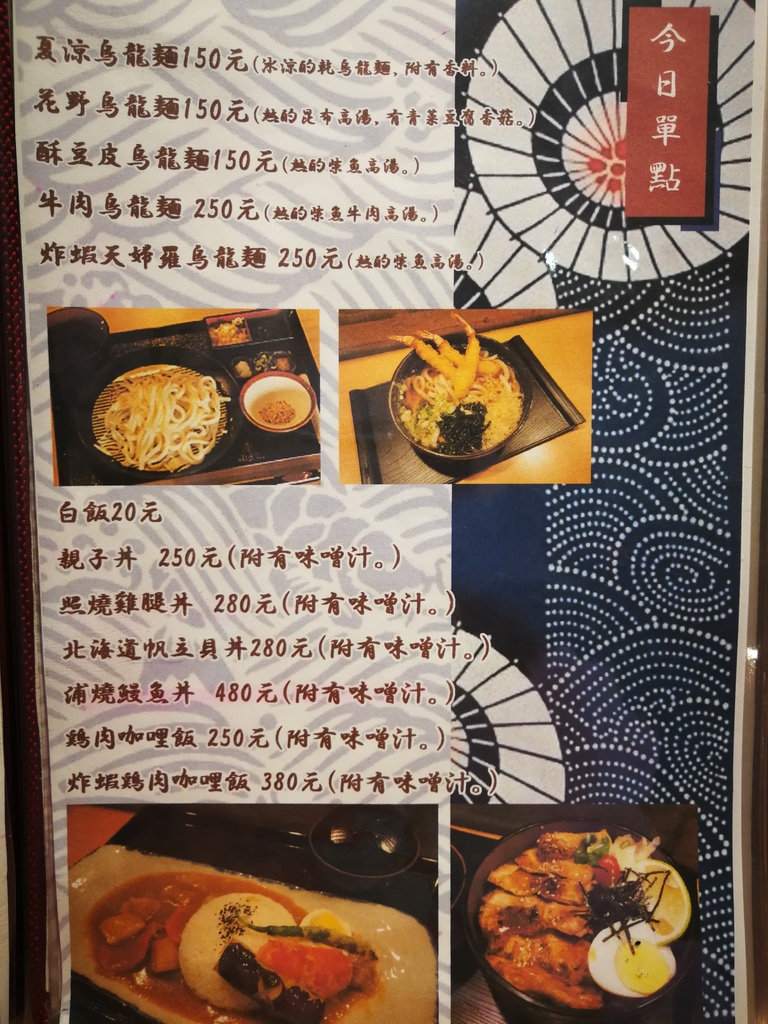 今日單點
夏涼烏龍麵150元(冰涼的乾烏龍麵,附有香料。)
花野烏龍麵150元(熱的昆布高湯,有青菜豆腐香菇。)
酥豆皮烏龍麵150元(熱的柴魚高湯。)
牛肉烏龍麵 250元(熱的柴魚牛肉高湯。)
炸蝦天婦羅烏龍麵 250元(熱的柴魚高湯。)
白飯20元
親子丼 250元(附有味噌汁。)
照燒雞腿丼 280元(附有味噌汁。)
北海道帆立貝丼280元(附有味噌汁。)
浦燒鰻魚丼 480元(附有味噌汁。)
鶏肉咖哩飯 250元(附有味噌汁。)
炸蝦鶏肉咖哩飯 380元(附有味噌汁。)